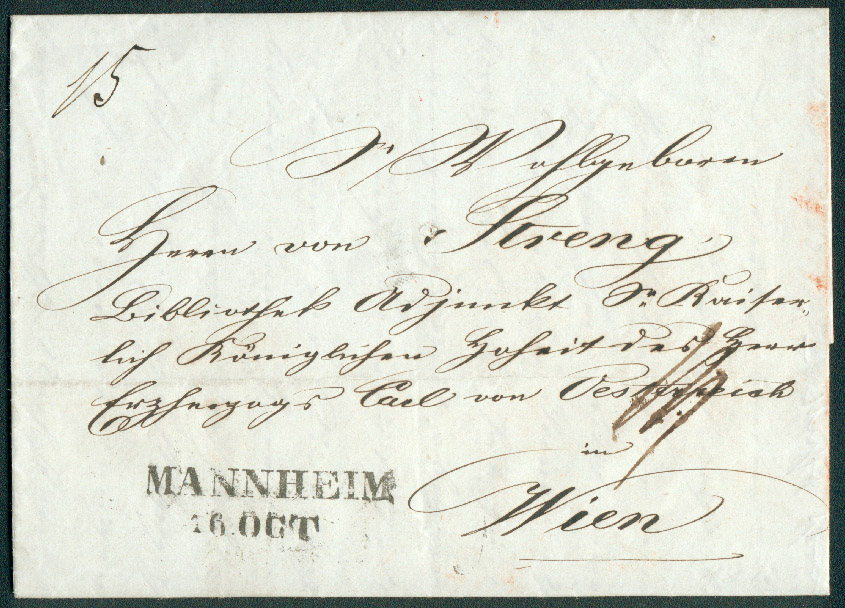 15
Sr Wohlgeboren
Herrn von Streng
Bibliothek Adjunkt Sr Kaiser-
lich Königlichen Hoheit des Herr
Erzherzogs Carl von Oestreich
in
Wien
MANNHEIM
16 OCT